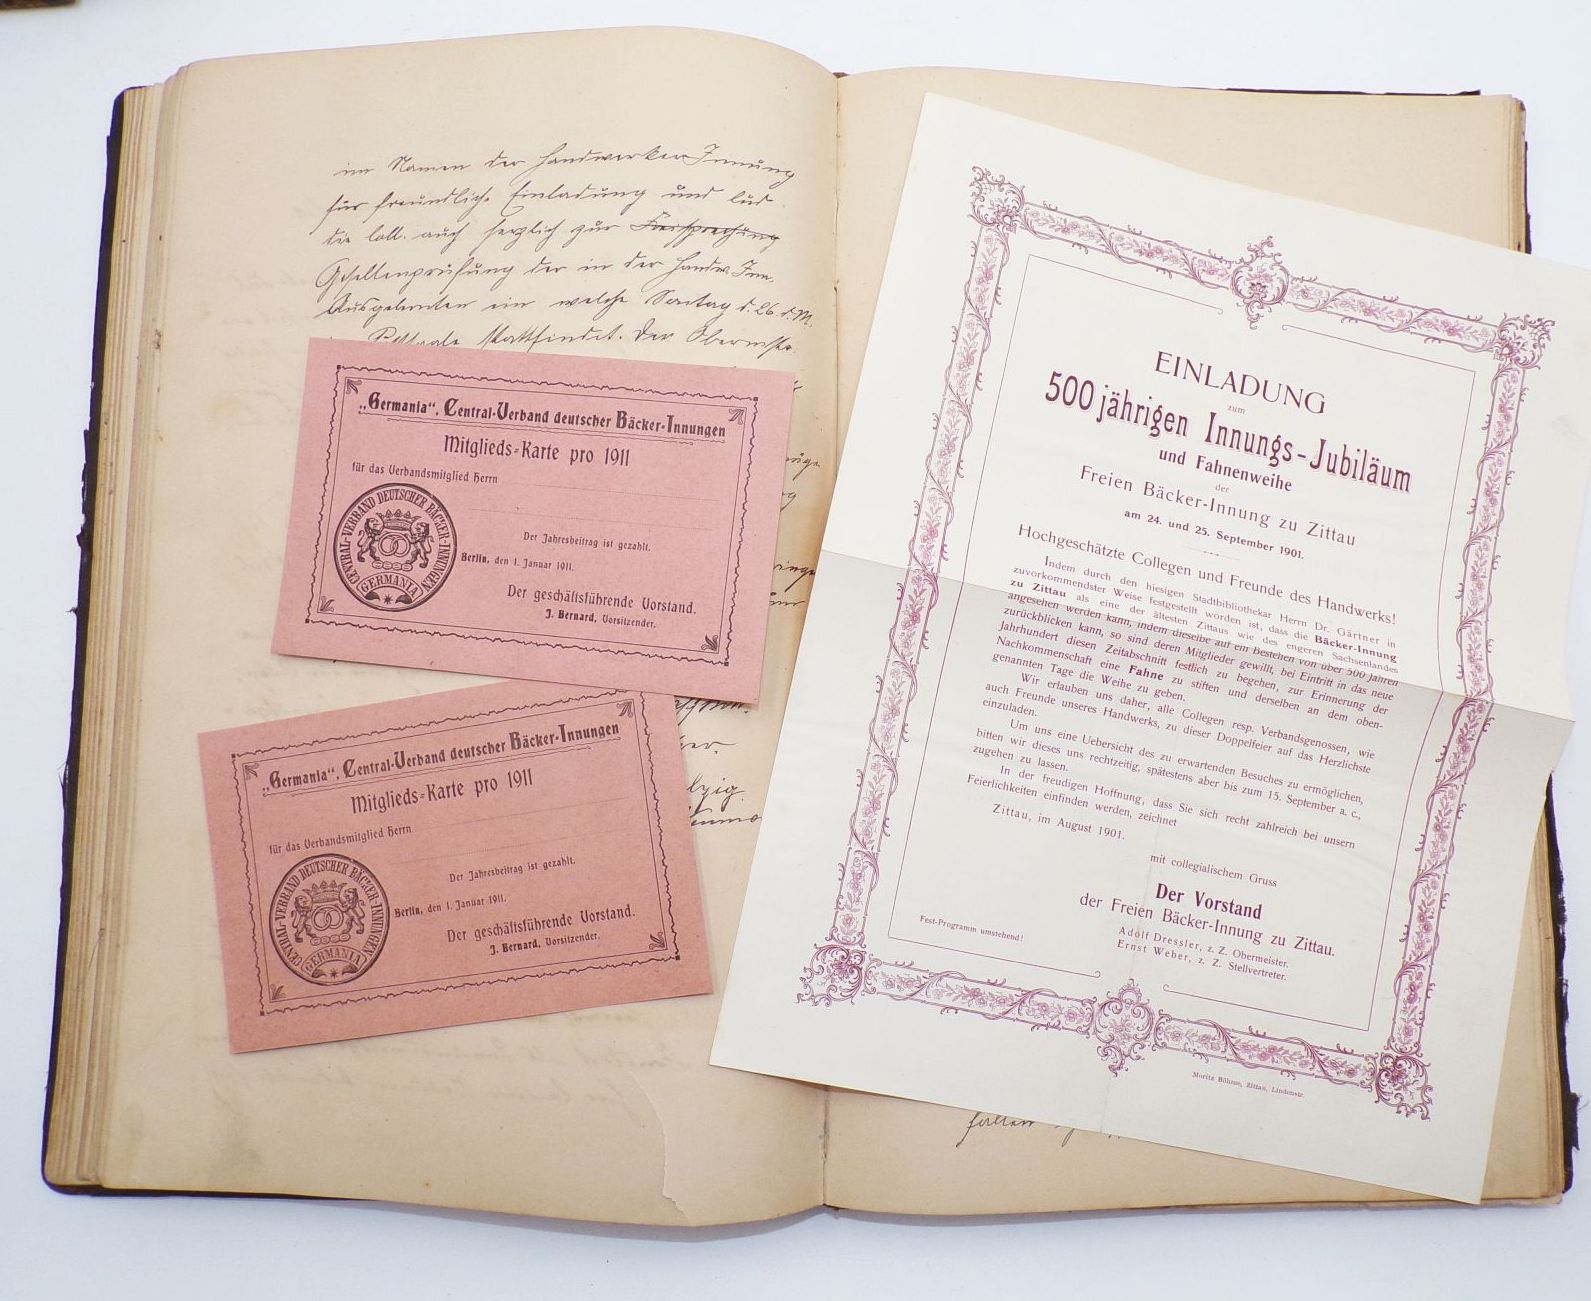 im Namen der Handwerker Innung
für freundliche Einladung und lud
die Coll. auch herzlich zur Freisprechung
Gesellenprüfung der in der Handw. Inn.
Ausgelernten ein welche Sontag d. 26. d. M.
stattfindet. Der Obermstr.
„Germania“, Central-Verband deutscher Bäcker-Innungen
Mitglieds-Karte pro 1911
für das Verbandsmitglied Herrn
CENTRAL-VERBAND DEUTSCHER BÄCKER-INNUNGEN
GERMANIA
Der Jahresbeitrag ist gezahlt.
Berlin, den 1. Januar 1911.
Der geschäftsführende Vorstand.
J. Bernard, Vorsitzender.
„Germania“, Central-Verband deutscher Bäcker-Innungen
Mitglieds-Karte pro 1911
für das Verbandsmitglied Herrn
CENTRAL-VERBAND DEUTSCHER BÄCKER-INNUNGEN
GERMANIA
Der Jahresbeitrag ist gezahlt.
Berlin, den 1. Januar 1911.
Der geschäftsführende Vorstand.
J. Bernard, Vorsitzender.
EINLADUNG
zum
500 jährigen Innungs-Jubiläum
und Fahnenweihe
der
Freien Bäcker-Innung zu Zittau
am 24. und 25. September 1901.
Hochgeschätzte Collegen und Freunde des Handwerks!
Indem durch den hiesigen Stadtbibliothekar Herrn Dr. Gärtner in
zuvorkommendster Weise festgestellt worden ist, dass die Bäcker-Innung
zu Zittau als eine der ältesten Zittaus wie des engeren Sachsenlandes
angesehen werden kann, indem dieselbe auf ein Bestehen von über 500 Jahren
zurückblicken kann, so sind deren Mitglieder gewillt, bei Eintritt in das neue
Jahrhundert diesen Zeitabschnitt festlich zu begehen, zur Erinnerung der
Nachkommenschaft eine Fahne zu stiften und derselben an dem oben-
genannten Tage die Weihe zu geben.
Wir erlauben uns daher, alle Collegen resp. Verbandsgenossen, wie
auch Freunde unseres Handwerks, zu dieser Doppelfeier auf das Herzlichste
einzuladen.
Um uns eine Uebersicht des zu erwartenden Besuches zu ermöglichen,
bitten wir dieses uns rechtzeitig, spätestens aber bis zum 15. September a. c.,
zugehen zu lassen.
In der freudigen Hoffnung, dass Sie sich recht zahlreich bei unsern
Feierlichkeiten einfinden werden, zeichnet
Zittau, im August 1901.
mit collegialischem Gruss
Der Vorstand
der Freien Bäcker-Innung zu Zittau.
Adolf Dressler, z. Z. Obermeister.
Ernst Weber, z. Z. Stellvertreter.
Fest-Programm umstehend!
Moritz Böhme, Zittau, Lindenstr.